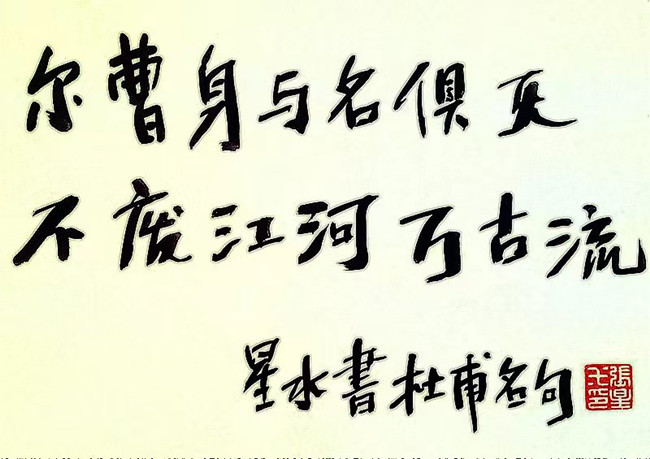 尔曹身与名俱灭
不废江河万古流
星水書杜甫名句